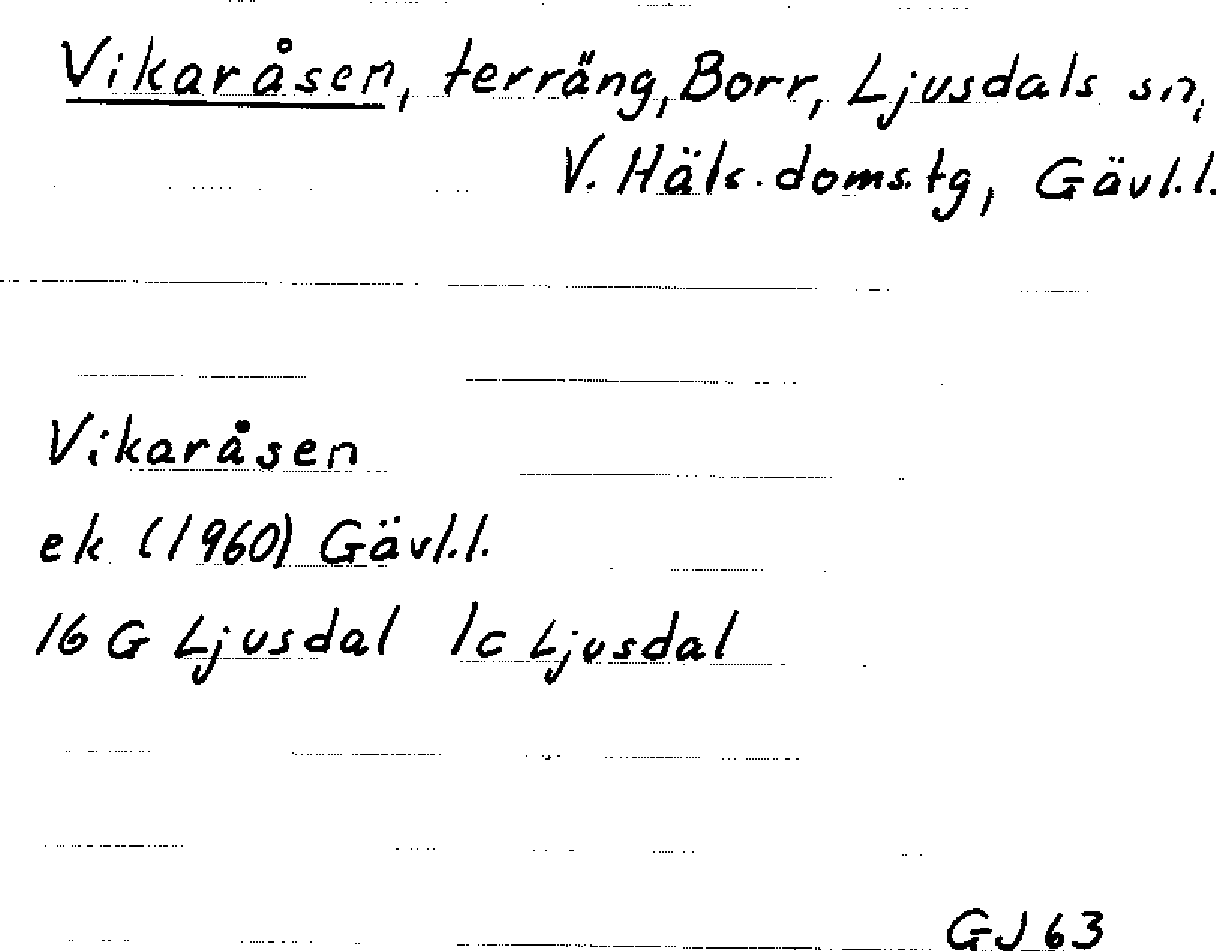 Vikaråsen, terräng, Borr, Ljusdals sn,
V. Häls. doms. tg, Gävl.l.
Vikaråsen
ek (1960) Gävl.l.
16 G Ljusdal 1c Ljusdal
GJ 63